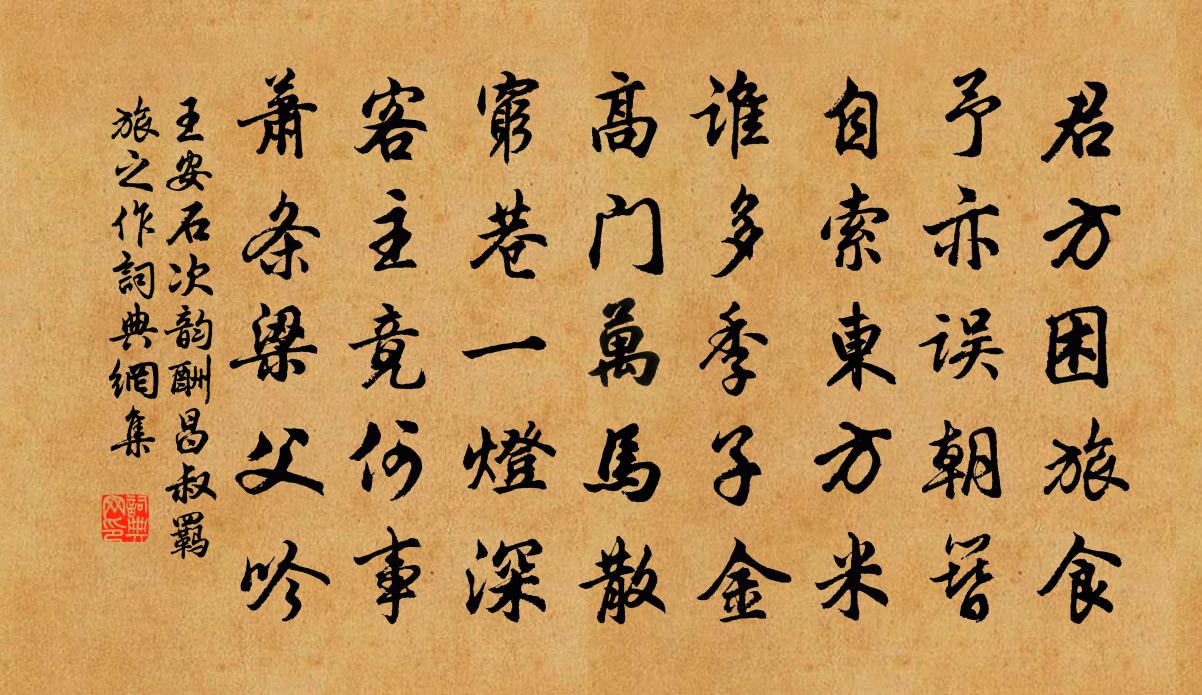 君方困旅食
予亦误朝簪
自索東方米
谁多季子金
高门萬馬散
窮巷一燈深
客主竟何事
萧条梁父吟
王安石次韵酬昌叔羁
旅之作詞典網集
詞典
网印